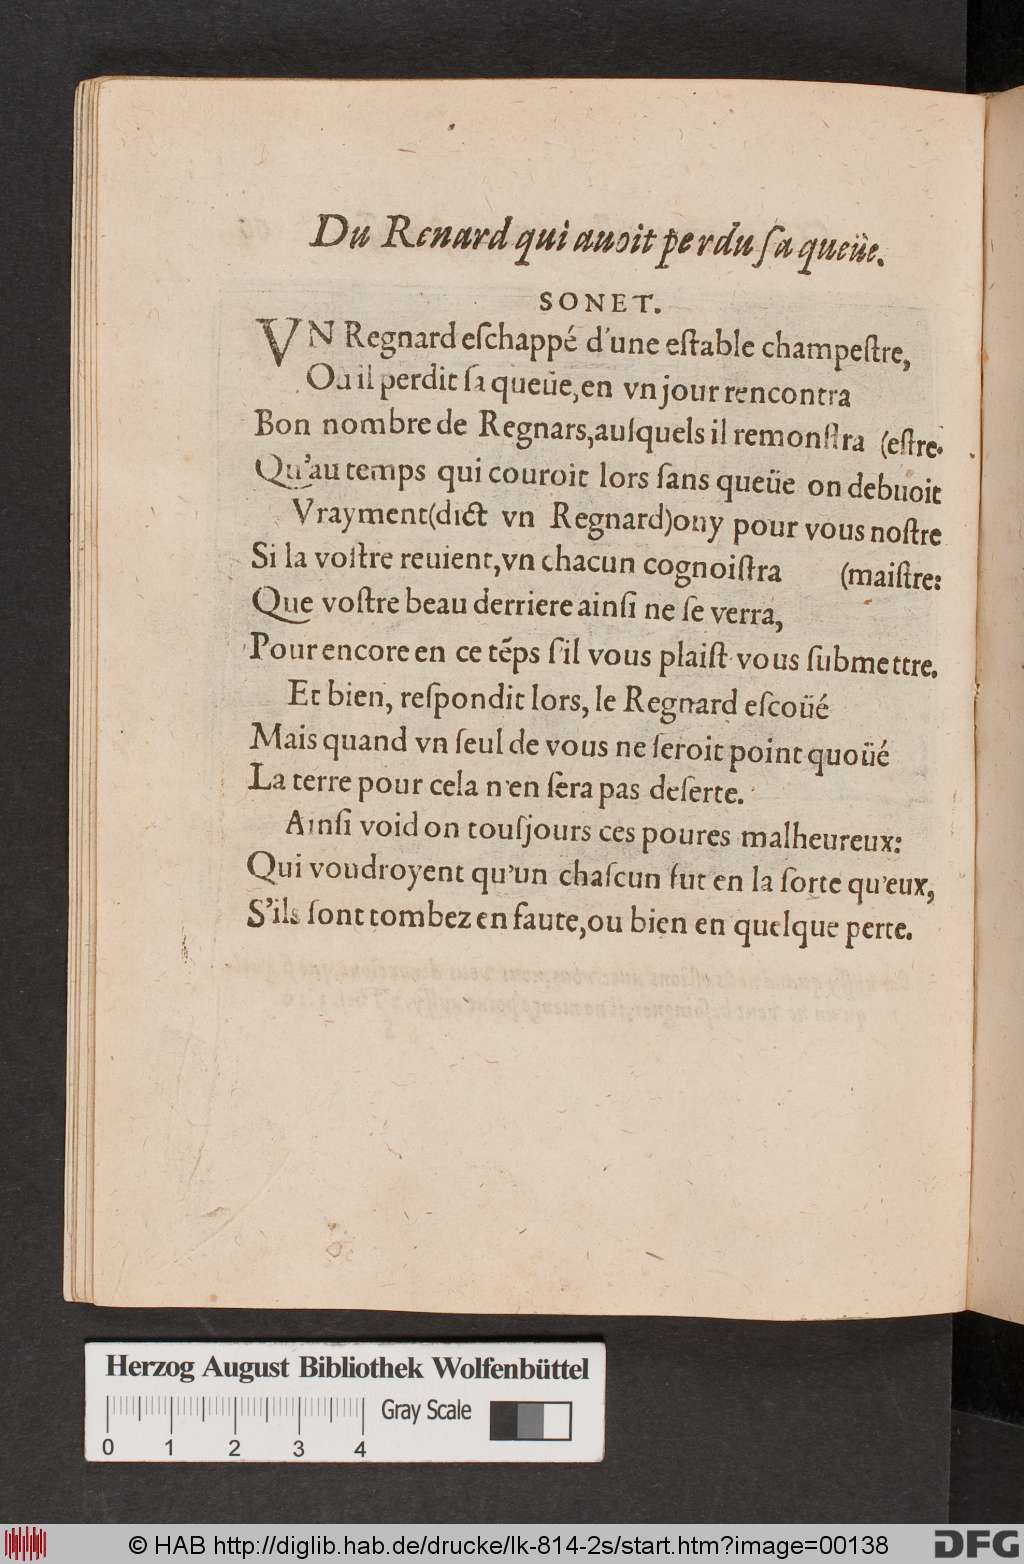 Du Renard qui auoit perdu ſa queüe.
SONET.
VN Regnard eſchappé d'une eſtable champeſtre,
Ou il perdit ſa queüe, en vn jour rencontra
Bon nombre de Regnars, auſquels il remonſtra (eſtre.
Qu'au temps qui couroit lors ſans queüe on debuoit
Vrayment (dict vn Regnard) ony pour vous noſtre
Si la voſtre reuient, vn chacun cognoiſtra (maiſtre:
Que voſtre beau derriere ainſi ne ſe verra,
Pour encore en ce tẽps ſ'il vous plaiſt vous ſubmettre.
Et bien, reſpondit lors, le Regnard eſcoüé
Mais quand vn ſeul de vous ne ſeroit point quoüé
La terre pour cela n'en ſera pas deſerte.
Ainſi void on touſjours ces poures malheureux:
Qui voudroyent qu'un chaſcun fut en la ſorte qu'eux,
S'ils ſont tombez en faute, ou bien en quelque perte.
Herzog August Bibliothek Wolfenbüttel
Gray Scale
0 1 2 3 4
© HAB http://diglib.hab.de/drucke/lk-814-2s/start.htm?image=00138
DFG